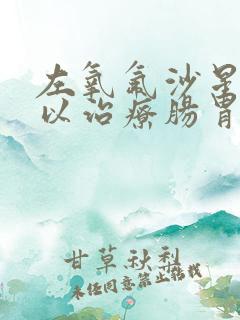 左氧氟沙星
以治療腸胃
甘草秋梨
未经同意禁止转载